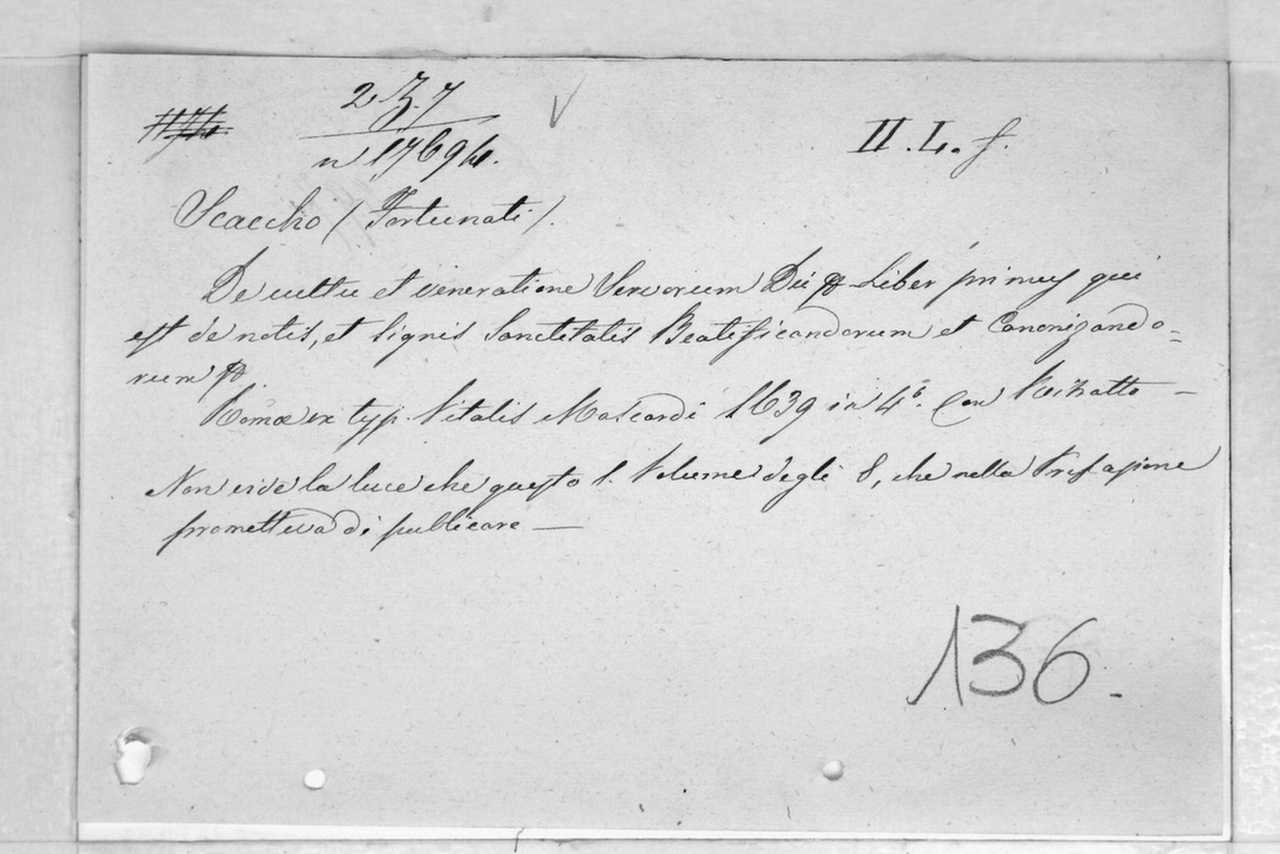 2 Z. 7
n 17694.
II. L. f.
Scaccho (Fortunati).
De cultu et veneratione Servorum Dei Liber primus qui
est de notis, et signis Sanctitatis Beatificandorum et Canonizando=
rum
Romae ex typ. Vitalis Mascardi 1639 in 4°. Con Ritratto —
Non vide la luce che questo 1. Volume degli 8, che nella Prefazione
prometteva di publicare —
136.